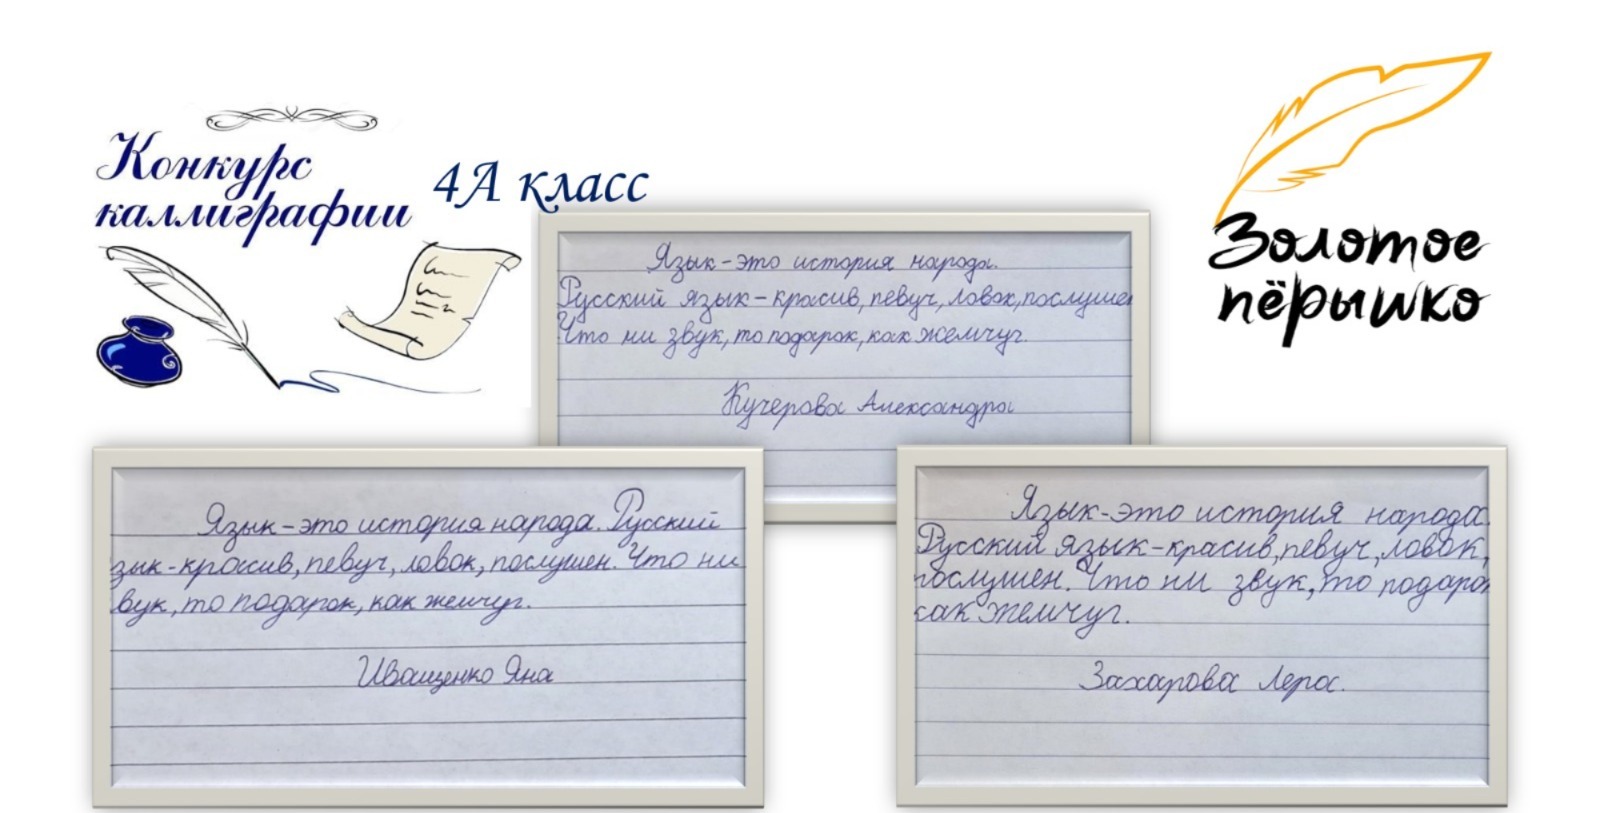 Конкурс
каллиграфии
4А класс
Золотое
пёрышко
Язык-это история народа.
Русский язык-красив, певуч, ловок, послушен
Что ни звук, то подарок, как жемчуг.
Кучерова Александра
Язык-это история народа. Русский
зык-красив, певуч, ловок, послушен. Что ни
вук, то подарок, как жемчуг.
Иващенко Яна
Язык-это история народа.
Русский язык-красив, певуч, ловок,
послушен. Что ни звук, то подарок
как жемчуг.
Захарова Лера.